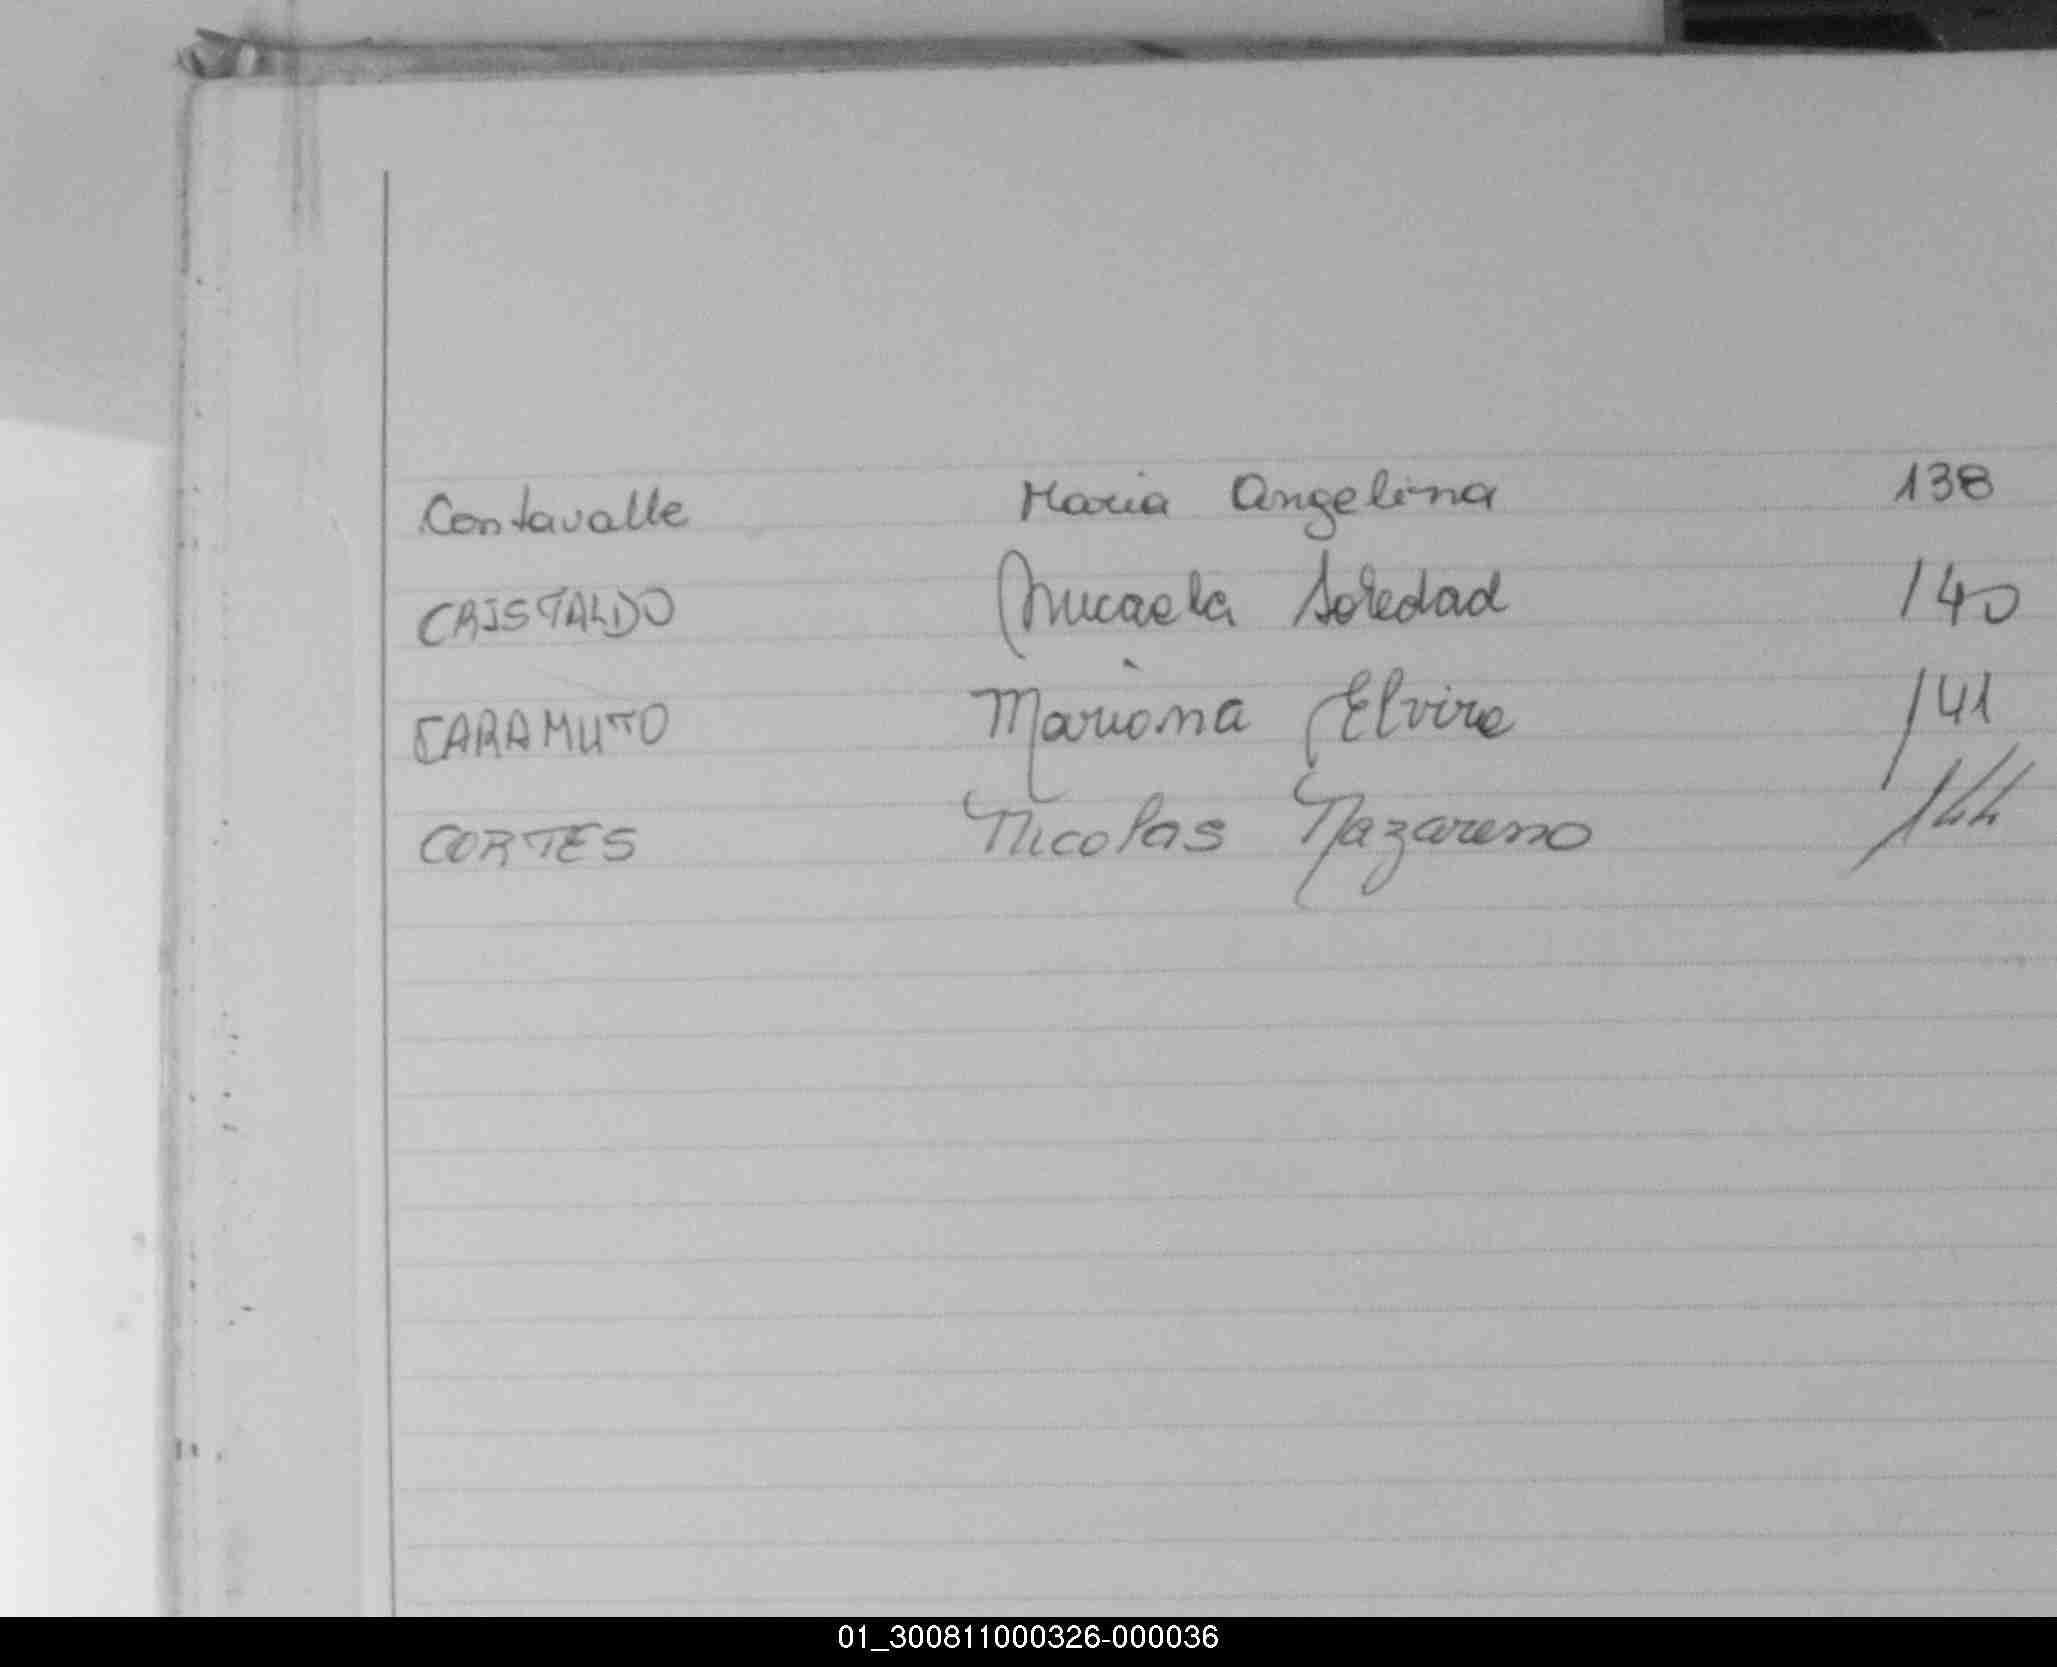 Contavalle Maria Angelina 138
CRISTALDO Micaela Soledad 140
CARAMUTO Mariana Elvira 141
CORTES Nicolas Nazareno 144
01_300811000326-000036